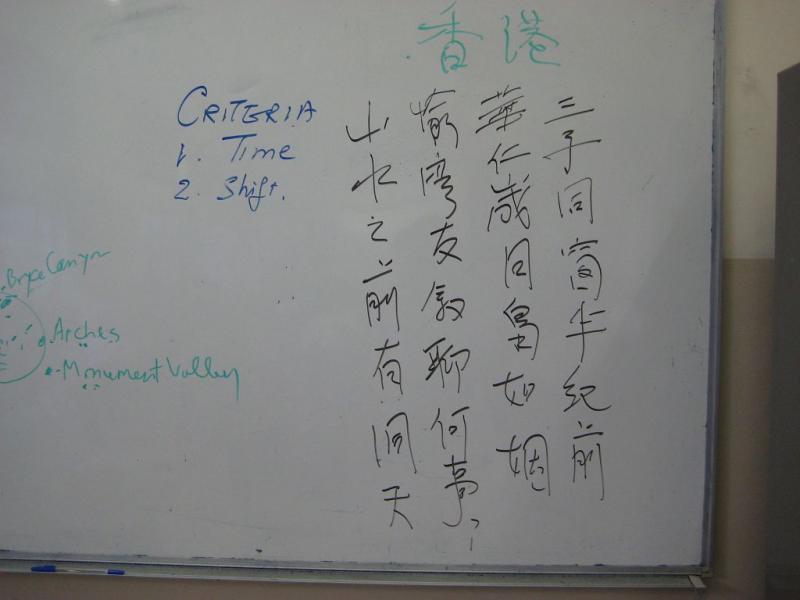 香港
CRITERIA
1. Time
2. Shift.
三子同窗半紀前
華仁歲月如
愉灣友敘聊何事?
山水之前有洞天
Bryce Canyon
Arches
Monument Valley